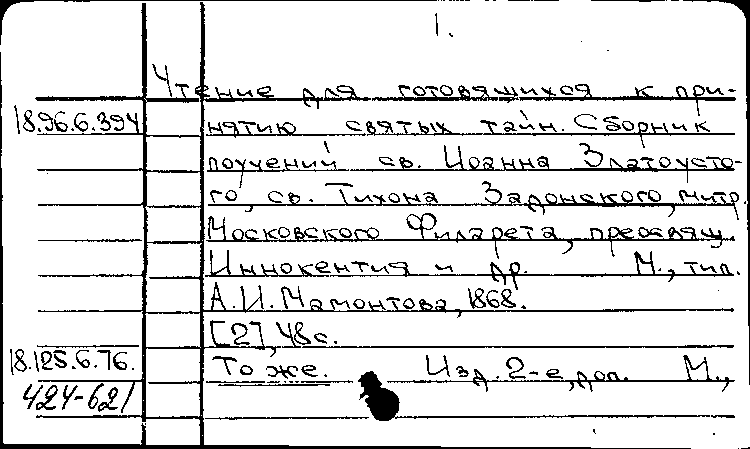 1.
Чтение для готовящихся к при-
18.96.6.394 нятию святых тайн. Сборник
поучений св. Иоанна Златоусто-
го, св. Тихона Задонского, митр.
Московского Филарета, преосвящ.
Иннокентия и др. М., тип.
А.И. Мамонтова, 1868.
[2], 48 с.
18.125.6.76. То же. Изд. 2-е, доп. М.,
424-621